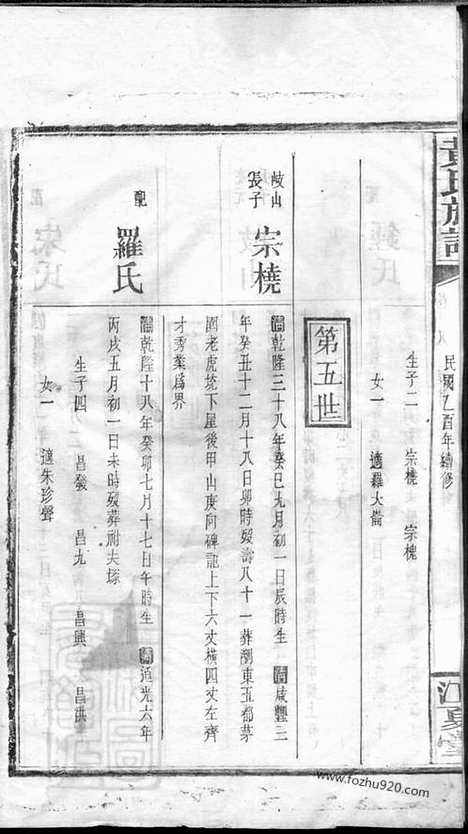 黃氏族譜
民國乙百年續修
江夏堂
生子二 宗橈 宗槐
女一 適羅大崙
第五世
岐山長子 宗橈
清乾隆三十八年癸巳九月初一日辰時生 清咸豐三
年癸丑十二月十八日卯時歿壽八十一葬瀏東五都茅
園老虎墈下屋後甲山庚向碑記上下六丈橫四丈左齊
才秀業爲界
配 羅氏
清乾隆十八年癸卯七月十七日午時生 清道光六年
丙戌五月初一日未時歿葬祔夫塚
生子四 昌發 昌九 昌興 昌洪
女一 適朱珍聲
www.fozhu920.com